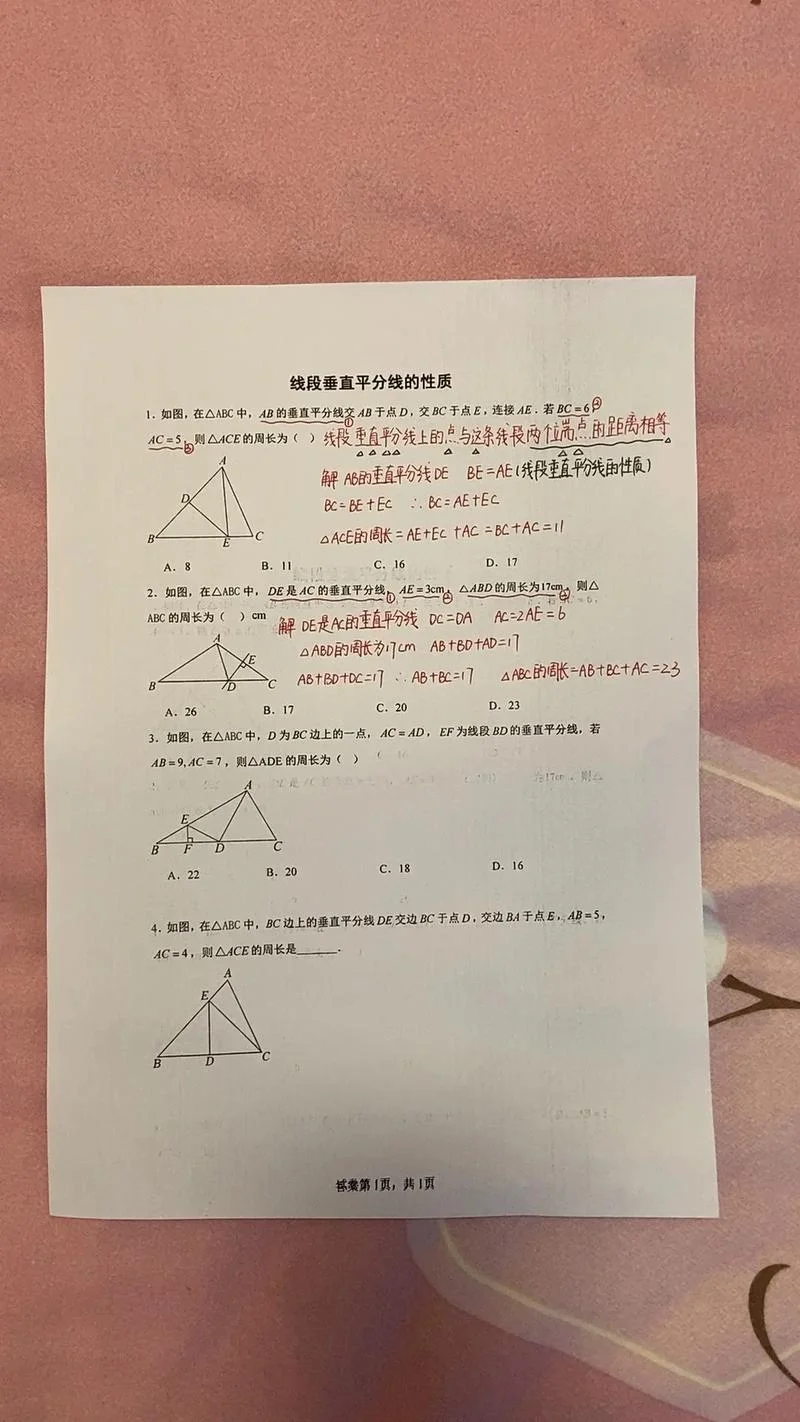 线段垂直平分线的性质
1. 如图，在△ABC 中，AB的垂直平分线交 AB 于点 D，交 BC 于点 E，连接 AE．若 BC＝6 ②
AC＝5 ③，则△ACE的周长为（ ） 线段垂直平分线上的点与这条线段两个端点的距离相等
①
解 AB的垂直平分线DE BE＝AE(线段垂直平分线的性质)
BC＝BE+EC ∴BC＝AE+EC
△ACE的周长＝AE+EC +AC＝BC+AC＝11
A
D
B E C
A．8 B．11 C．16 D．17
2．如图，在△ABC 中，DE 是 AC 的垂直平分线 ①，AE＝3cm ②，△ABD 的周长为17cm ③，则△
ABC 的周长为（ ）cm 解 DE是AC的垂直平分线 DC＝DA AC＝2AE＝6
△ABD的周长为17cm AB+BD+AD＝17
AB+BD+DC＝17 ∴AB+BC＝17 △ABC的周长＝AB+BC+AC＝23
A
E
B D C
A．26 B．17 C．20 D．23
3．如图，在△ABC 中，D 为 BC 边上的一点，AC＝AD，EF 为线段 BD 的垂直平分线，若
AB＝9, AC＝7，则△ADE 的周长为（ ）
A
E
B F D C
A．22 B．20 C．18 D．16
4．如图，在△ABC 中，BC 边上的垂直平分线 DE 交边 BC 于点 D，交边 BA 于点 E，AB＝5，
AC＝4，则△ACE 的周长是______．
A
E
B D C
答案第1页，共1页